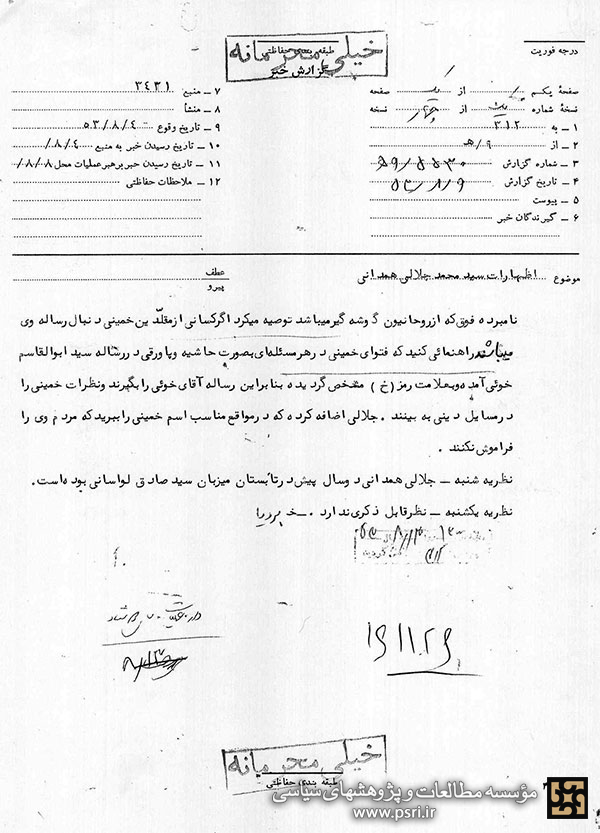 خیلی محرمانه
طبقه بندی حفاظتی
گزارش خبر
درجه فوریت
صفحهٔ یکم از صفحه
نسخهٔ شماره از چهار نسخه
۱ ـ به ۳۱۲
۲ ـ از ۹/هـ
۳ ـ شماره گزارش
۴ ـ تاریخ گزارش ۵۳/۸/۹
۵ ـ پیوست
۶ ـ گیرندگان خبر
۷ ـ منبع ۳۴۳۱
۸ ـ منشأ
۹ ـ تاریخ وقوع ۵۳/۸/۴
۱۰ ـ تاریخ رسیدن خبر به منبع ۸/۴/
۱۱ ـ تاریخ رسیدن خبر برهبر عملیات محل ۸/۸/
۱۲ ـ ملاحظات حفاظتی
موضوع اظهارات سید محمد جلالی همدانی
عطف
پیرو
نامبرده فوق که از روحانیون گوشه گیر میباشد توصیه میکرد اگر کسانی از مقلدین خمینی دنبال رساله وی
میباشند راهنمائی کنید که فتوای خمینی در هر مسئله‌ای بصورت حاشیه و پاورقی در رساله سید ابوالقاسم
خوئی آمده و بعلامت رمز (خ) مشخص گردیده بنابراین رساله آقای خوئی را بگیرند و نظرات خمینی را
در مسایل دینی به بینند . جلالی اضافه کرده که در مواقع مناسب اسم خمینی را ببرید که مردم وی را
فراموش نکنند .
نظریه شنبه ـ جلالی همدانی دو سال پیش در تابستان میزبان سید صادق لواسانی بوده است.
نظریه یکشنبه ـ نظر قابل ذکری ندارد .
خیلی محرمانه
طبقه بندی حفاظتی
مؤسسه مطالعات و پژوهشهای سیاسی
www.psri.ir